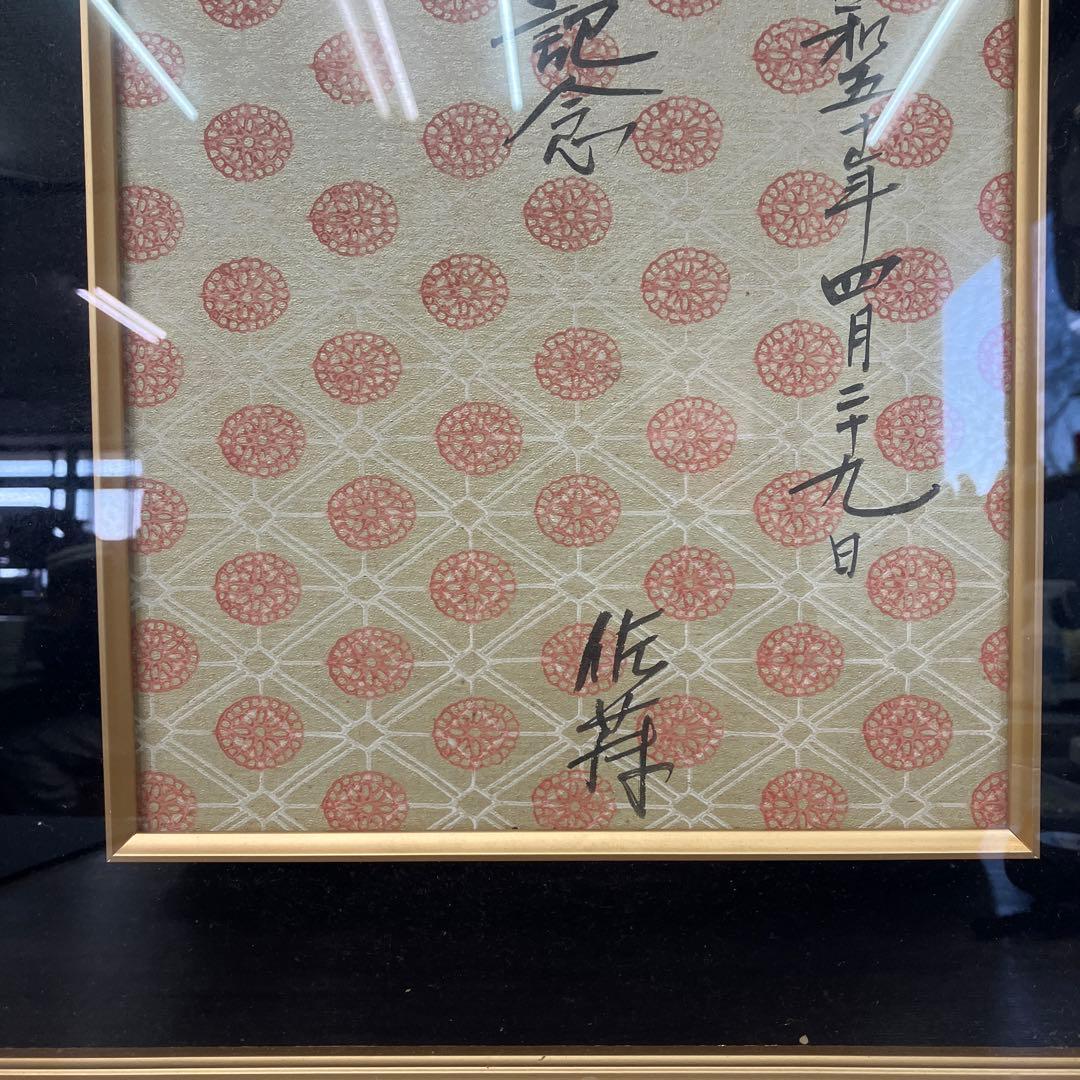 和五十年四月二十九日
記念
佐